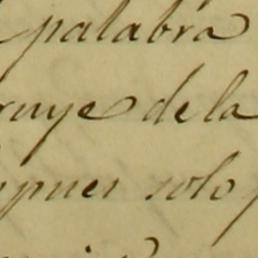 palabra
ruye de la
spues solo